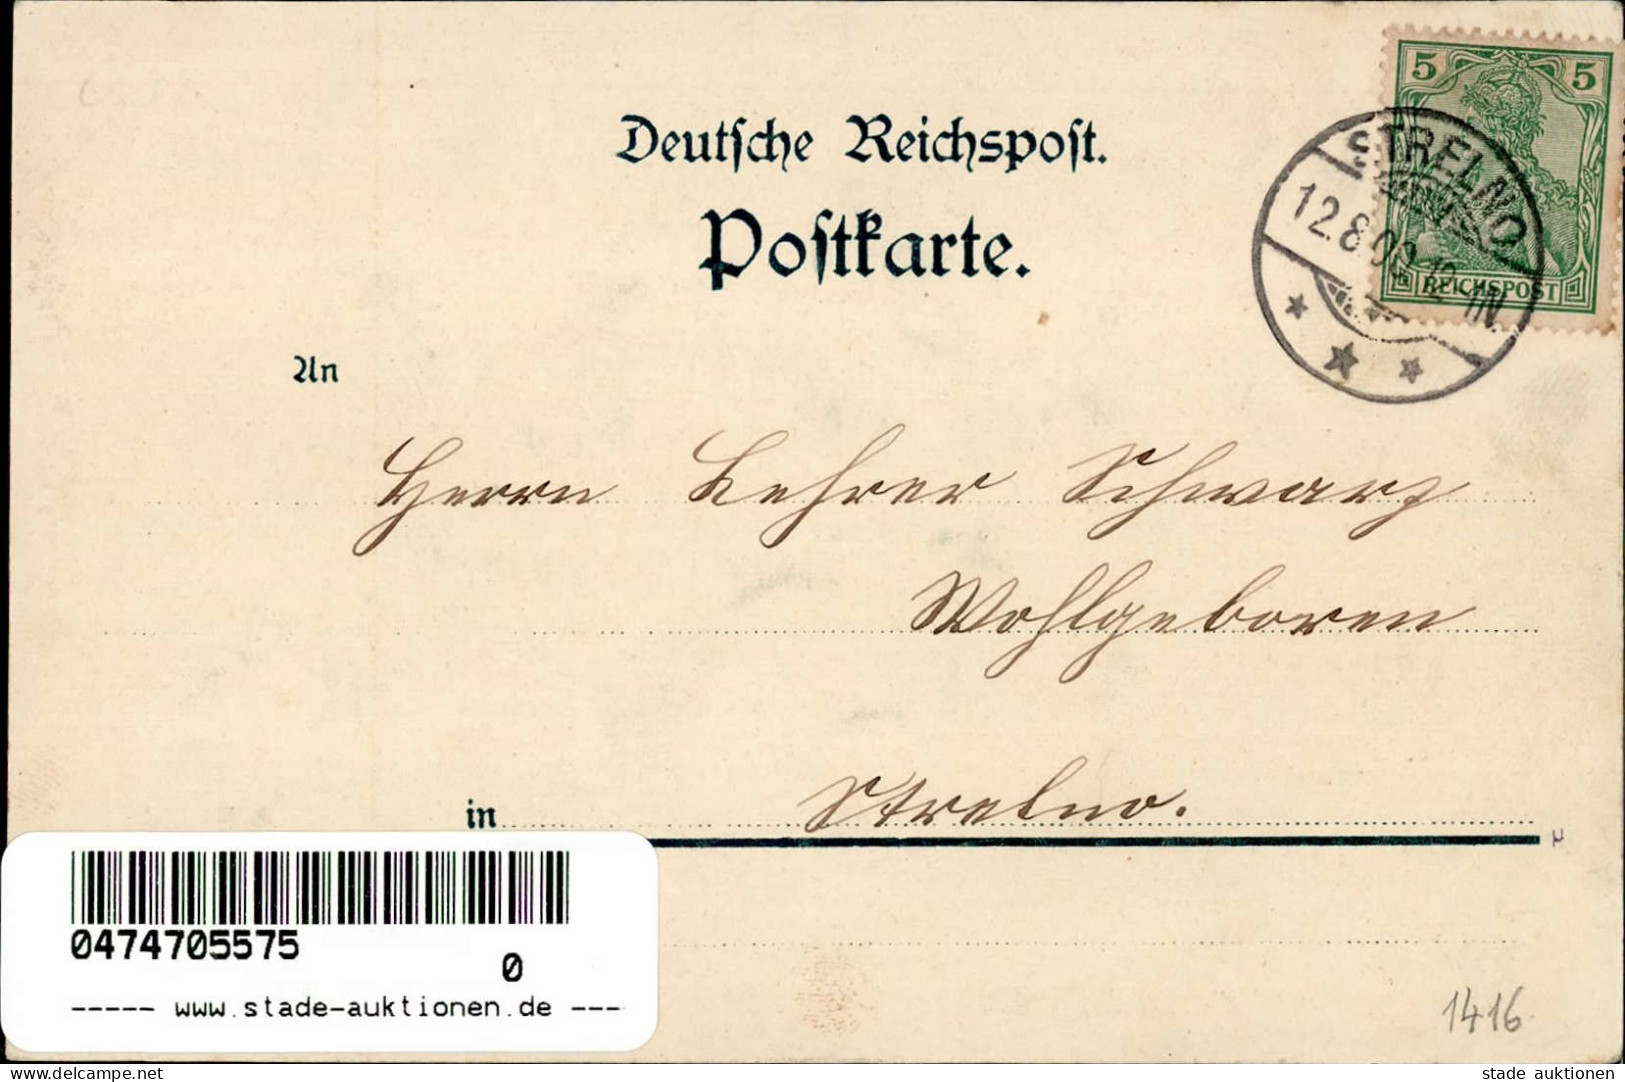 Deutsche Reichspost.
Postkarte.
5 5
REICHSPOST
STRELNO
12.8.00.12-1N.
An
Herrn Lehrer Schwarz
Wohlgeboren
in Strelno.
0474705575
0
----- www.stade-auktionen.de ---
1416
delcampe.net
stade auktionen